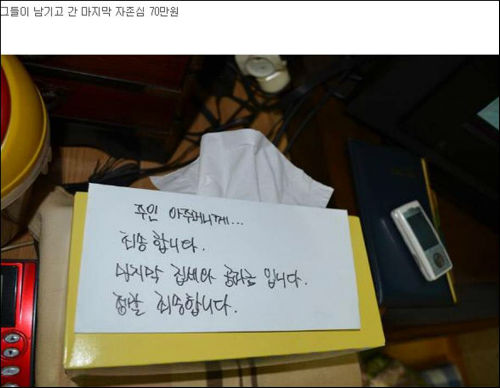 그들이 남기고 간 마지막 자존심 70만원
주인 아주머니께...
죄송합니다.
마지막 집세와 공과금 입니다.
정말 죄송합니다.